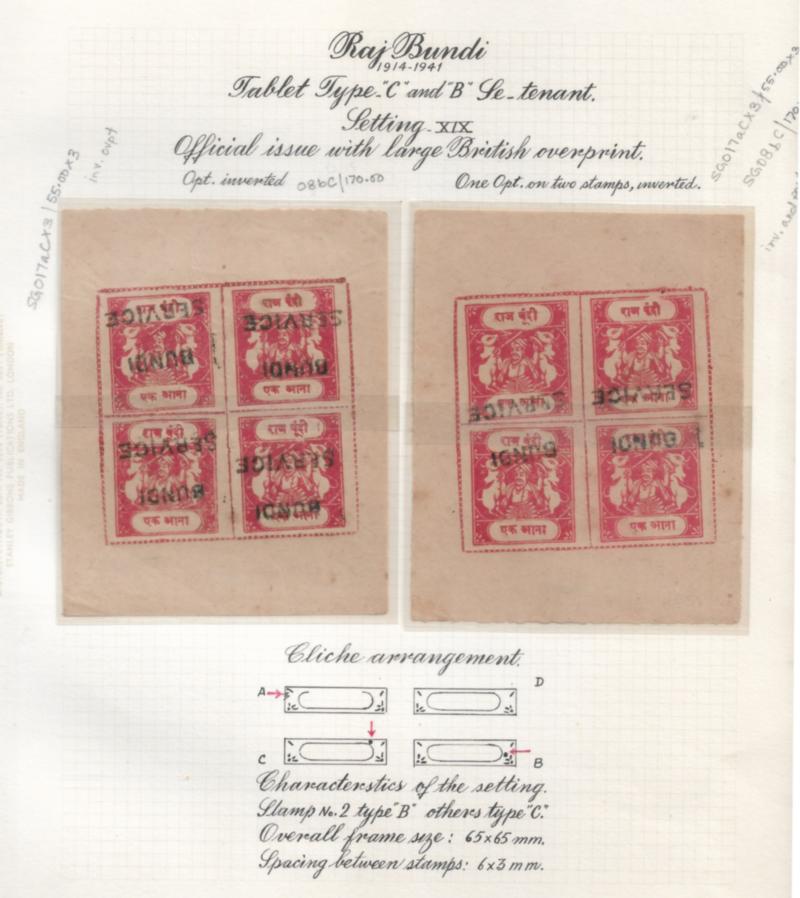 Raj Bundi
1914-1941
Tablet Type-"C" and "B" Se-tenant.
Setting-XIX
Official issue with large British overprint.
Opt. inverted 08bC/170.00 One Opt. on two stamps, inverted.
SG017aCX3/55.00X3
inv. ovpt
SG017aCX3/55.00X3
SG08bC/170.
inv. and
राज बूंदी राज बूंदी
SERVICE SERVICE
BUNDI BUNDI
एक आना एक आना
राज बूंदी राज बूंदी
SERVICE SERVICE
BUNDI BUNDI
एक आना एक आना
राज बूंदी राज बूंदी
एक आना एक आना
SERVICE SERVICE
राज बूंदी राज बूंदी
BUNDI BUNDI
एक आना एक आना
STANLEY GIBBONS PUBLICATIONS LTD. LONDON
MADE IN ENGLAND
Cliche arrangement.
A D
C B
Characterstics of the setting.
Stamp No. 2 type "B" others type "C."
Overall frame size: 65x65 mm.
Spacing between stamps: 6x3 mm.